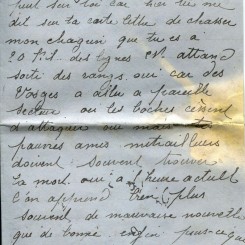 seul sur toi car hier tu me
dis sur ta carte lettre de chasser
mon chagrin que tu es à
20 des lignes attend
soité des rangs oui car des
Vosges à a pareille
secteur ou les boches cessent
d'attaquer oui mais
pauvres amis mitrailleurs
doivent souvent trouver
la mort oui à l'heure actuelle
l'on apprend bien plus
souvent de mauvaise nouvelle
que de bonne enfin